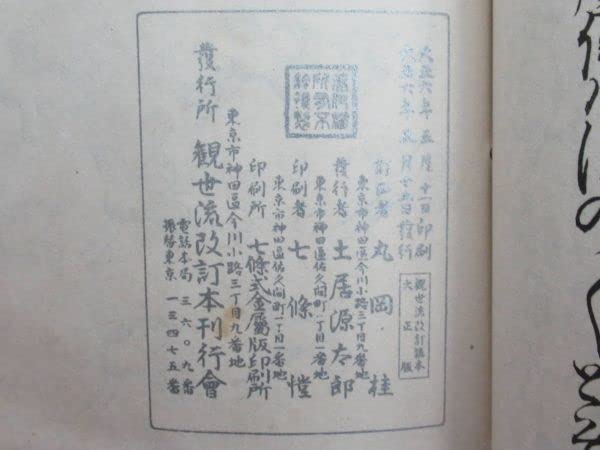 大正六年五月十一日印刷
大正六年五月十五日發行
觀世流改訂謠本
大正版
訂正者 丸岡桂
東京市神田區今川小路三丁目九番地
發行者 土居源太郎
東京市神田區佐久間町一丁目一番地
印刷者 七條愷
東京市神田區佐久間町一丁目一番地
印刷所 七條式金屬版印刷所
東京市神田區今川小路三丁目九番地
發行所 觀世流改訂本刊行會
電話本局 三六〇九番
振替東京 一三四七五番